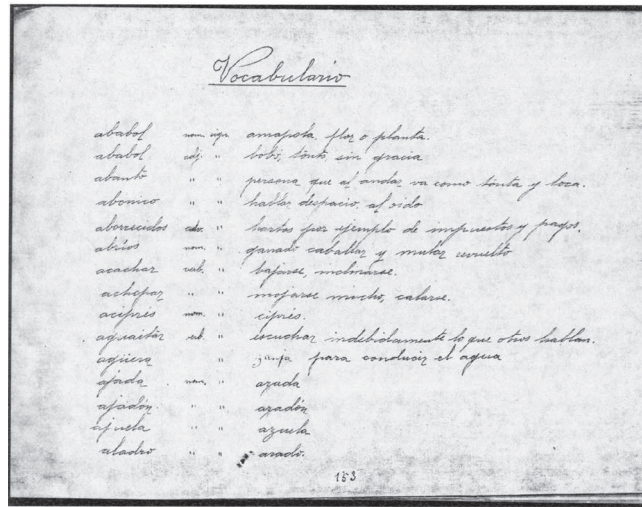 Vocabulario
ababol nom. sign. amapola, flor o planta.
ababol adj. " bobo, tonto, sin gracia
abanto " " persona que al andar va como tonta y loca.
abonico " " hablar despacio, al oido
aborrecidos adv. " hartos por ejemplo de impuestos y pagos.
abríos nom. " ganado caballar y mular revuelto
acachar verb. " bajarse, inclinarse.
achopar " " mojarse mucho, calarse.
aciprés nom. " ciprés.
aguaitar verb. " escuchar indebidamente lo que otros hablan.
agüera " zanja para conducir el agua
ajada nom. " azada
ajadón " " azadón
ajuela " " azuela
aladro " " arado.
163